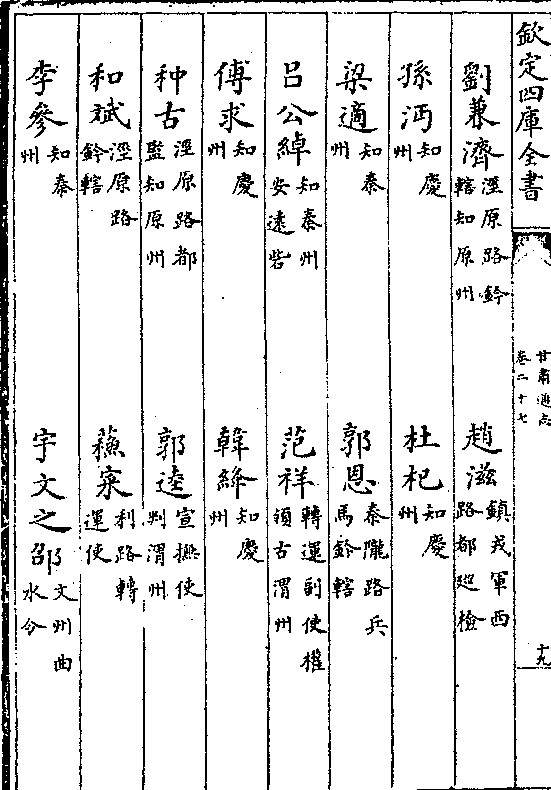 欽定四庫全書
甘肅通志
卷二十七
十九
劉兼濟涇原路鈐轄知原州
趙滋鎮戎軍西路都廵檢
孫沔知慶州
杜杞知慶州
梁適知秦州
郭恩秦隴路兵馬鈐轄
吕公綽知秦州安逺砦
范祥轉運副使權領古渭州
傅求知慶州
韓絳知慶州
种古涇原路都監知原州
郭逵宣撫使判渭州
和斌涇原路鈐轄
蘇寀利路轉運使
李參知秦州
宇文之邵文州曲水令